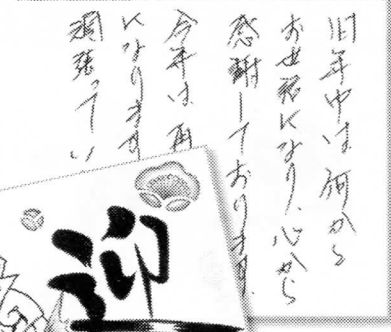 旧年中は、何から
お世話になり、心から
感謝しております。
今年は、再
になります
頑張ってい
迎